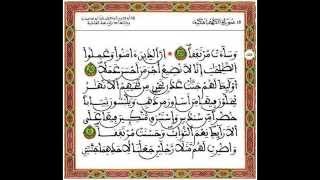 18 سُورَةُ الْكَهْفِ مَكِّيَّة
وَسَآءَتْ مُرْتَفَقاً ۞ إِنَّ اَ۬لذِينَ ءَامَنُواْ وَعَمِلُواْ
اُ۬لصَّٰلِحَٰتِ إِنَّا لَا نُضِيعُ أَجْرَ مَنْ أَحْسَنَ عَمَلًا
أُوْلَٰٓئِكَ لَهُمْ جَنَّٰتُ عَدْنٍ تَجْرِے مِن تَحْتِهِمُ اُ۬لْأَنْهَٰرُ
يُحَلَّوْنَ فِيهَا مِنْ أَسَاوِرَ مِن ذَهَبٍ وَيَلْبَسُونَ ثِيَاباً
خُضْراً مِّن سُندُسٍ وَإِسْتَبْرَقٍ مُّتَّكِـِٕينَ فِيهَا عَلَى
اَ۬لْأَرَآئِكِ نِعْمَ اَ۬لثَّوَابُ وَحَسُنَتْ مُرْتَفَقاً
وَاضْرِبْ لَهُم مَّثَلًا رَّجُلَيْنِ جَعَلْنَا لِأَحَدِهِمَا جَنَّتَيْنِ